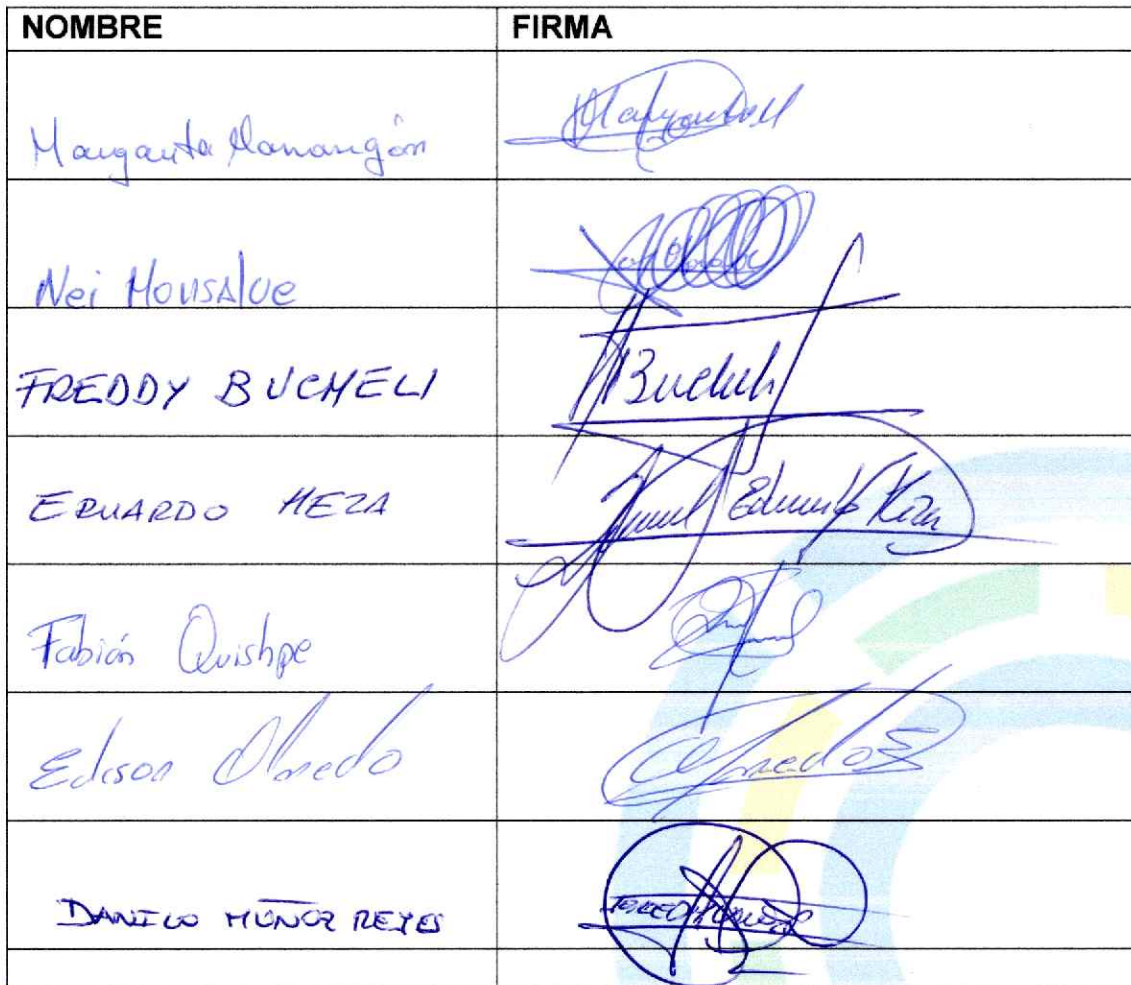 NOMBRE FIRMA
Margarita
Nei Monsalve
FREDDY BUCHELI
EDUARDO MEZA Eduardo Meza
Fabián Quishpe
Edison Olmedo Olmedo E
DANILO MUÑOZ REYES